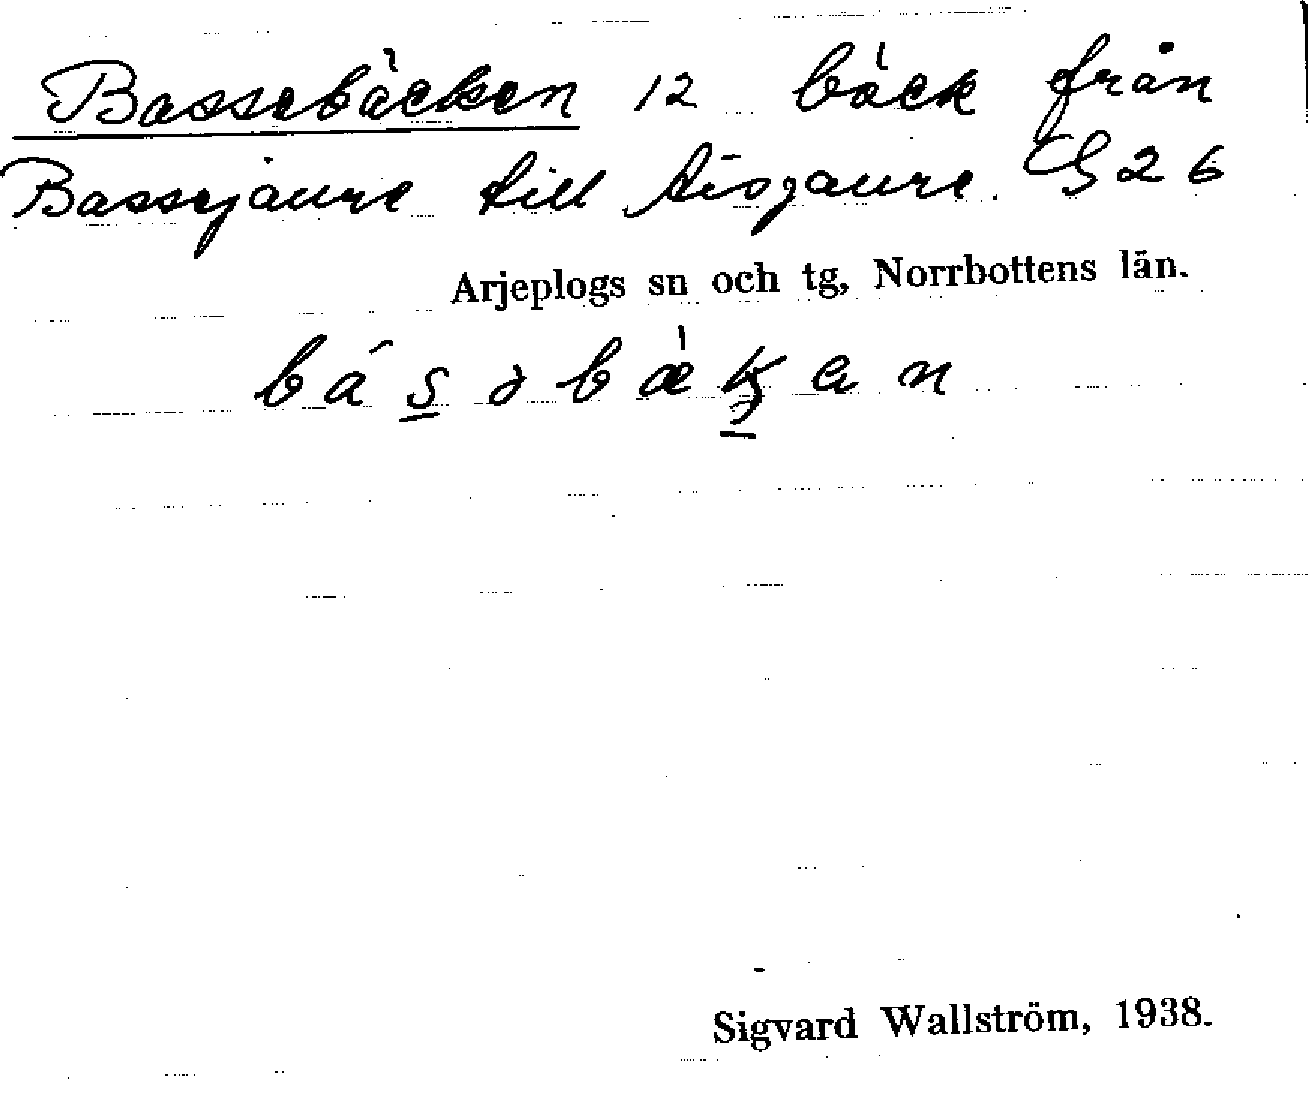 Bassebäcken 12 bäck från
Bassejaure till Aisjaure. G 26
Arjeplogs sn och tg, Norrbottens län.
Sigvard Wallström, 1938.